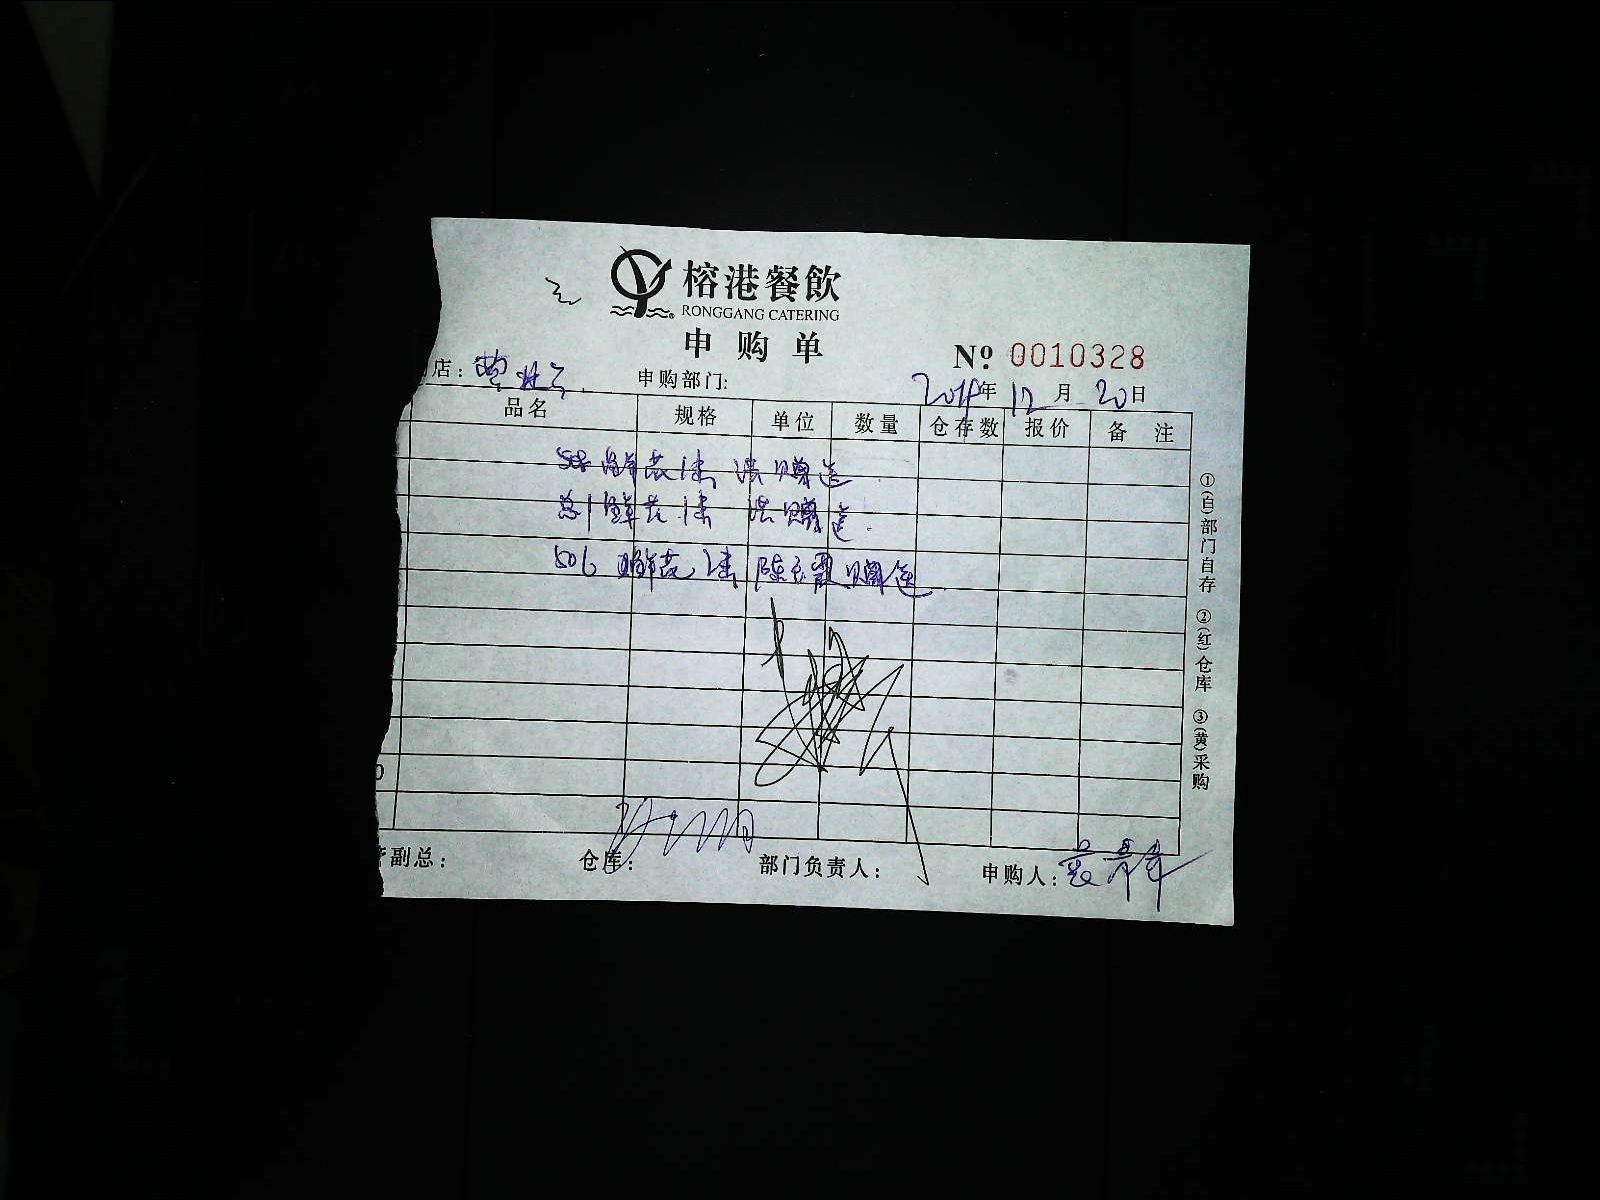 榕港餐飲
RONGGANG CATERING
申购单
Nº 0010328
店： 申购部门: 年 12 月 20 日
品名 规格 单位 数量 仓存数 报价 备注
鲜花 1束 洪 赠送
总1 鲜花 1束 洪 赠送
506 鲜花 2束 陈玉霞 赠送
副总： 仓库： 部门负责人： 申购人：
①(白)部门自存 ②(红)仓库 ③(黄)采购